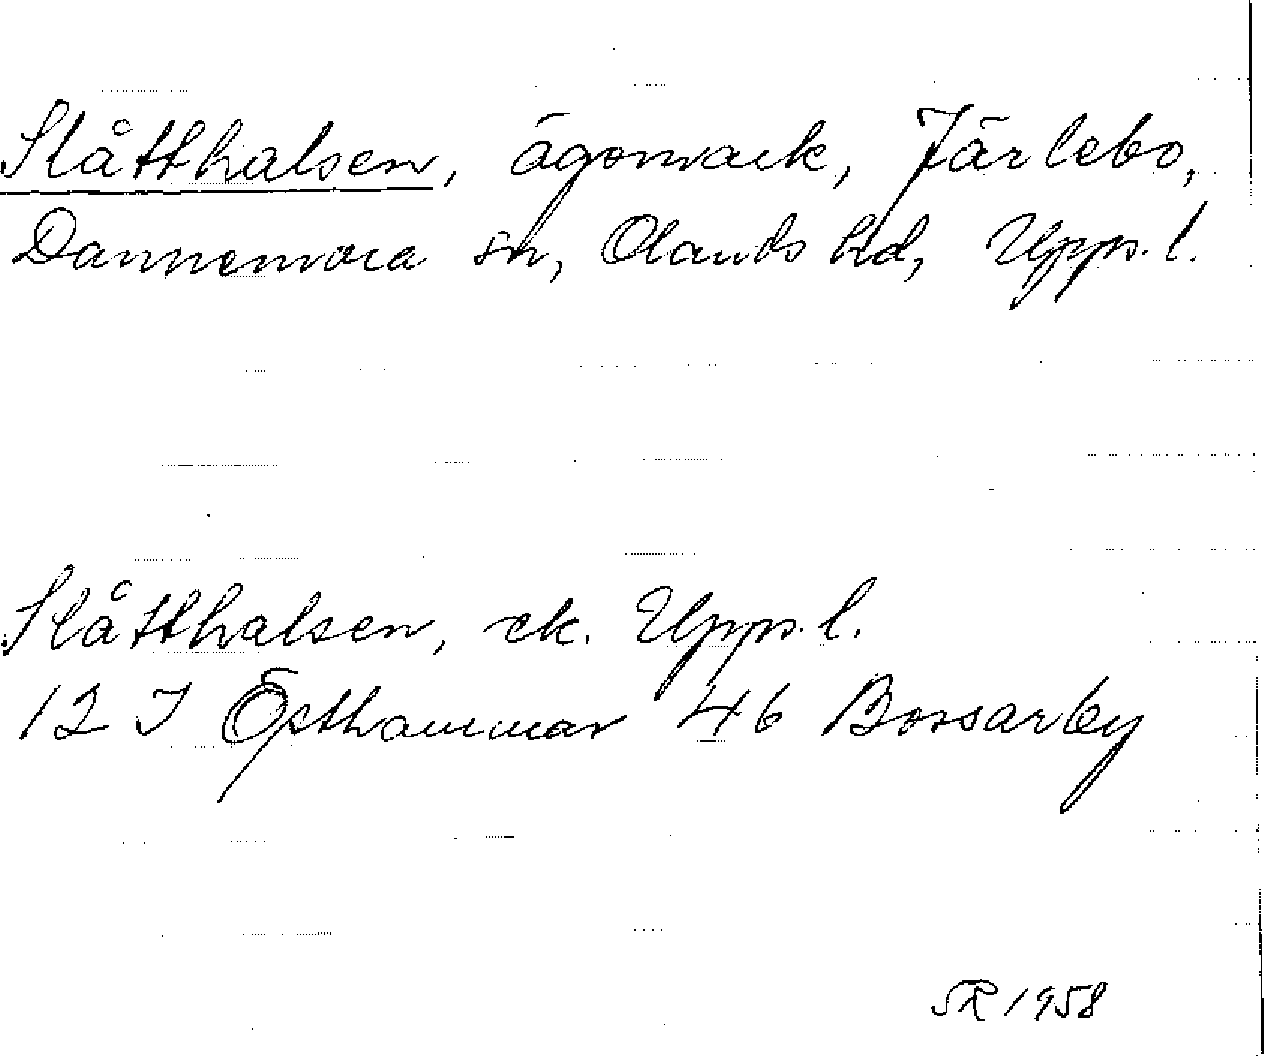 Slåtthalsen, ägomark, Järlebo,
Dannemora sn, Olands hd, Uppl.
Slåtthalsen, ek. Uppl.
12 I Östhammar 46 Bossarby
SR 1958